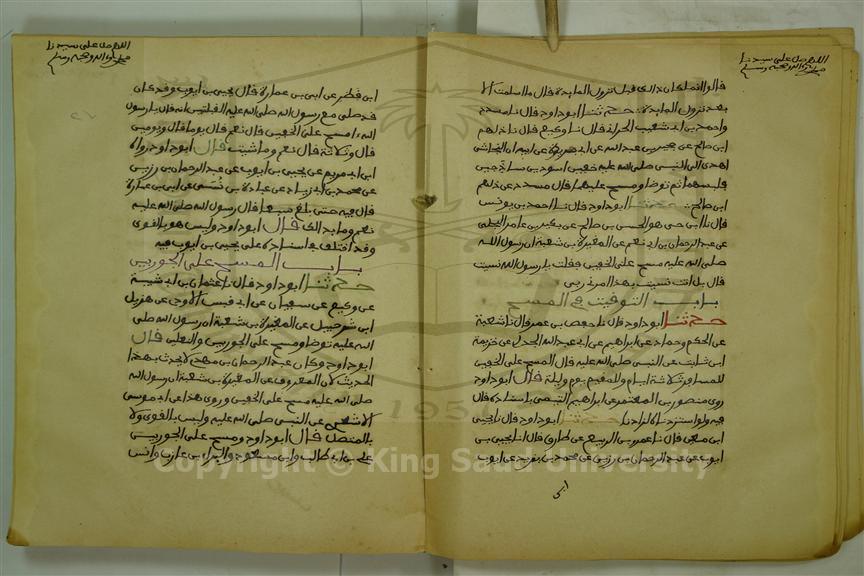 اللهم صل على سيدنا
محمد واله وصحبه وسلم
قالوا انما كان ذالك قبل نزول المايدة قال ما اسلمت الا
بعد نزول المايدة حدثنا ابو داود قال نا مسدد
واحمد بن ابي شعيب الحراني قالا نا وكيع قال نا دلهم
ابن صالح عن حجير بن عبد الله عن ابن بريدة عن ابيه ان النجاشي
اهدى الى النبي صلى الله عليه خفين اسودين ساذجين
فلبسهما ثم توضا ومسح عليهما قال مسدد عن دلهم
ابن صالح حدثنا ابو داود قال نا احمد بن يونس
قال نا ابن حي هو الحسن بن صالح عن بكير بن عامر البجلي
عن عبد الرحمان بن ابي نعم عن المغيرة بن شعبة ان رسول الله
صلى الله عليه مسح على الخفين فقلت يا رسول الله نسيت
قال بل انت نسيت بهذا امرني ربي
باب التوقيت في المسح
حدثنا ابو داود قال نا حفص بن عمر قال نا شعبة
عن الحكم وحماد عن ابراهيم عن ابي عبد الله الجدلي عن خزيمة
ابن ثابت عن النبي صلى الله عليه قال المسح على الخفين
للمسافر ثلاثة ايام وللمقيم يوم وليلة قال ابو داود
روى منصور بن المعتمر عن ابراهيم التيمي باسناده قال
فيه ولو استزدناه لزادنا حدثنا ابو داود قال نا يحيى
ابن معين قال نا عمرو بن الربيع بن طارق قال انا يحيى بن
ايوب عن عبد الرحمان بن رزين عن محمد بن يزيد عن ايوب
ابن
اللهم صل على سيدنا
محمد واله وصحبه وسلم
ابن قطن عن ابي بن عمارة قال يحيى بن ايوب وقد كان
قد صلى مع رسول الله صلى الله عليه القبلتين انه قال يا رسول
الله امسح على الخفين قال نعم قال يوما قال ويومين
قال وثلاثة قال نعم وما شيت قال ابو داود رواه
ابن ابي مريم عن يحيى بن ايوب عن عبد الرحمان بن رزين
عن محمد بن ابي زياد عن عبادة بن نسي عن ابي بن عمارة
قال فيه حتى بلغ سبعا قال رسول الله صلى الله عليه
نعم وما بدا لك قال ابو داود وليس هو بالقوي
وقد اختلف في اسناده على يحيى بن ايوب فيه
باب المسح على الجوربين
حدثنا ابو داود قال نا عثمان بن ابي شيبة
عن وكيع عن سفيان عن ابي قيس الاودي عن هزيل
ابن شرحبيل عن المغيرة بن شعبة ان رسول الله صلى
الله عليه توضا ومسح على الجوربين والنعلين قال
ابو داود وكان عبد الرحمان بن مهدي لا يحدث بهذا
الحديث لان المعروف عن المغيرة بن شعبة ان رسول الله
صلى الله عليه مسح على الخفين وروي هذا عن ابي موسى
الاشعري عن النبي صلى الله عليه وليس بالقوي ولا
بالمتصل قال ابو داود ومسح على الجوربين
علي بن ابي طالب وابن مسعود والبراء بن عازب وانس
1957
Copyright © King Saud University